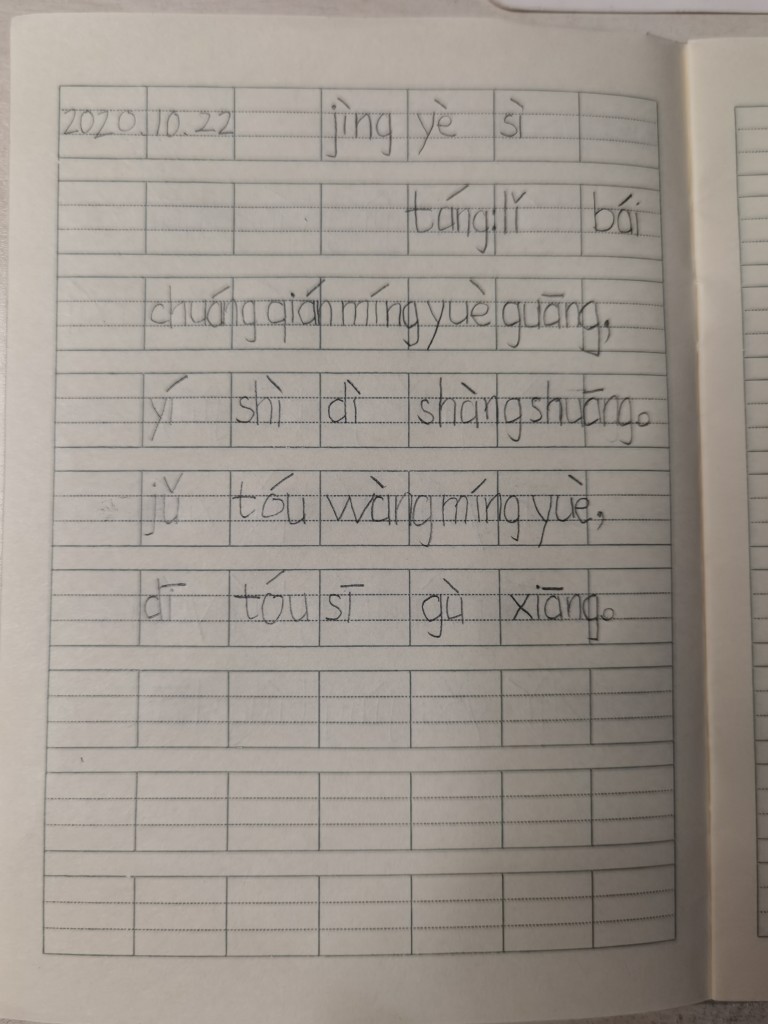 2020.10.22 jìng yè sì
táng:lǐ bái
chuáng qián míng yuè guāng,
yí shì dì shàng shuāng。
jǔ tóu wàng míng yuè,
dī tóu sī gù xiāng。